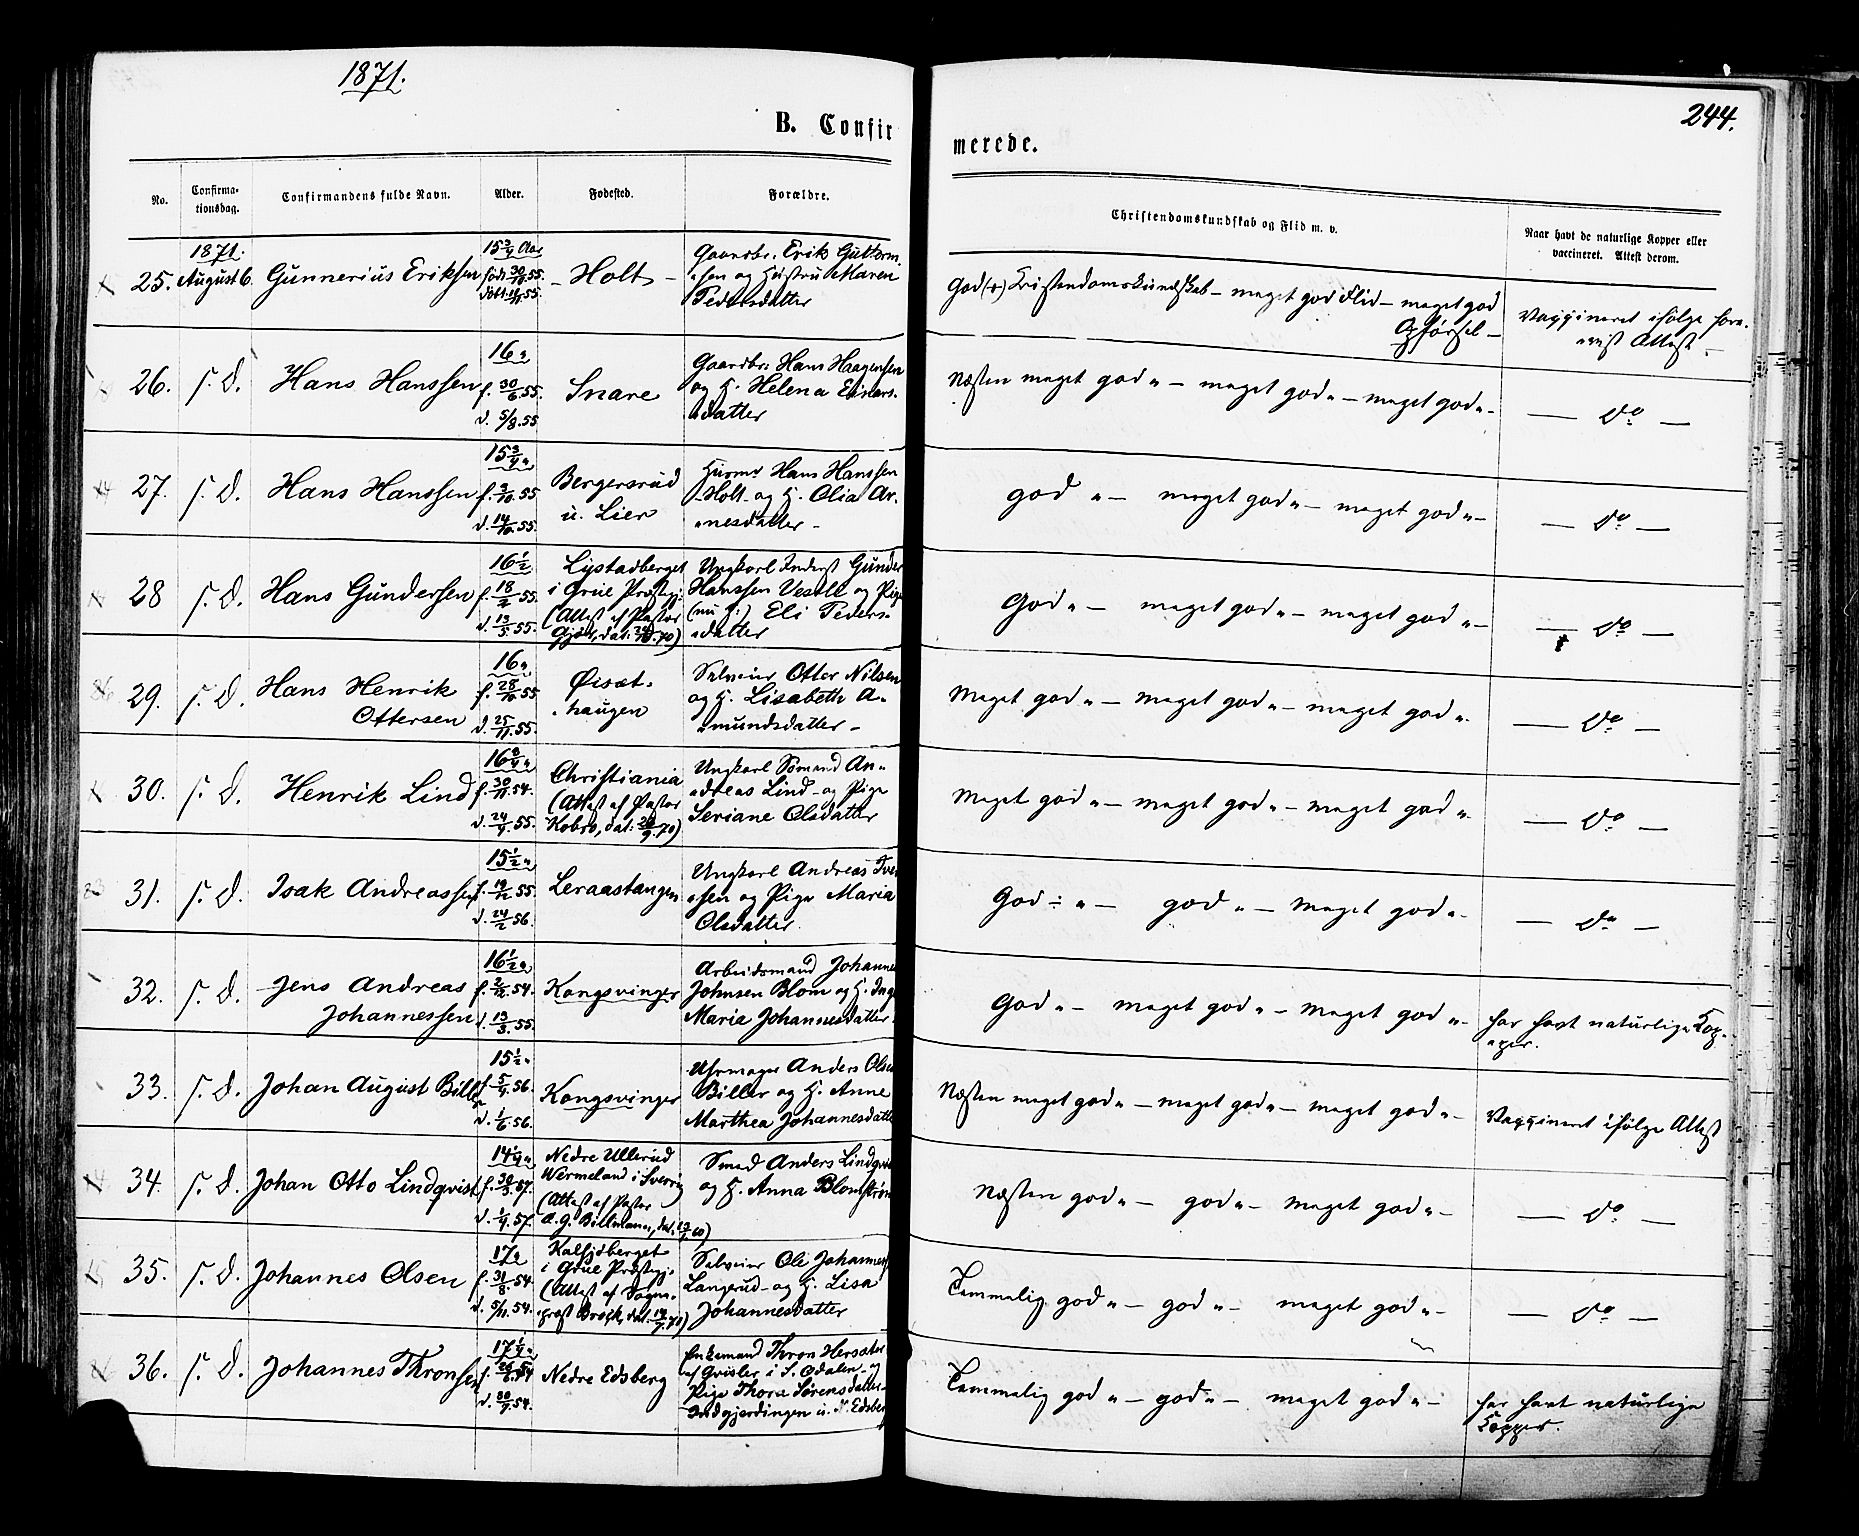 1871.
B. Confir
merede.
244.
No.
Confirma-
tionsdag.
Confirmandens fulde Navn.
Alder.
Fødested.
Forældre.
Christendomskundskab og Flid m. v.
Naar havt de naturlige Kopper eller
vaccineret. Attest derom.
1871.
25. August 6. Gunnerius Eriksen
15 3/4 Aar
født 30/10.55.
døbt 55.
Holt
Gaardbr. Erik Guttorm-
sen og Hustru Maren
Pedersdatter
God (+) Kristendomskundskab - meget god Flid - meget god
Opførsel -
Vaxxineret ifølge fore-
vist Attest -
26. s. D. Hans Hanssen
16 a
f. 30/6.55.
d. 5/8.55
Snare
Gaardbr. Hans Haagensen
og H. Helena Einers-
datter
Næsten meget god " - meget god " - meget god " -
— Do —
27. s. D. Hans Hanssen
15 3/4 a
f. 3/10.55
d. 14/10.55.
Bergersrud
u. Lier
Husmd Hans Hanssen
Holt og H. Olia Ar-
nesdatter -
god " - meget god " - meget god " -
— Do —
28 s. D. Hans Gundersen
16 1/2
f. 18/2.55.
d. 13/5.55.
Lystadberget
i Grue Præstgj:
(Attest af Pastor
dat: 70)
Ungkarl Inderst Gunder
Hanssen Vestle og Pige
(nu H:) Eli Peders-
datter
God " - meget god " - meget god " -
— Do —
29. s. D. Hans Henrik
Ottersen
16 a
f. 28/10.55
d. 25/11.55.
Øisæt-
haugen
Selveier Otter Nilsen
og H. Lisabeth A-
mundsdatter -
Meget god " - meget god " - meget god "
— Do —
30. s. D. Henrik Lind
16 3/4 a
f. 30/11.54.
d. 24/4.55.
Christiania
(Attest af Pastor
Kobro, dat: 70)
Ungkarl Sømand An-
dreas Lind og Pige
Seriane Olsdatter
Meget god " - meget god " - meget god "
— Do —
31. s. D. Isak Andreassen
15 1/2 a
f. 19/12.55.
d. 24/2.56.
Leraastangen
Ungkarl Andreas Iver
sen og Pige Maria
Olsdatter.
God ÷ " - god " - meget god " -
— Do —
32. s. D. Jens Andreas
Johannessen
16 1/2 a
f. 2/12.54.
d. 13/3.55.
Kongsvinger
Arbeidsmand Johannes
Johnsen Blom og H. Inge
Maria Johannesdatter.
God " - meget god " - meget god " -
har havt naturlige Kop-
per.
33. s. D. Johan August Biller
15 1/2 a
f. 5/4.56.
d. 1/6.56.
Kongsvinger
Uhrmager Anders Olsen
Biller og H. Anne
Marthea Johannesdatter
Næsten meget god " - meget god " - meget god " -
Vaxxineret ifølge Attest
34. s. D. Johan Otto Lindqvist
14 1/4 a
f. 30/3.57.
d. 1/4.57.
Nedre Ullerud
Wermeland i Sverrig
(Attest af Pastor
A. G. Billmann, dat: 60)
Smed Anders Lindqvist
og H. Anna Blomstrøm
Næsten god " - god " - meget god " -
— Do —
35. s. D. Johannes Olsen
17 a
f. 31/8.54.
d. 5/11.54.
Kalsjøberget
i Grue Præstgj.
(Attest af Sogne-
præst Brock, dat: 70)
Selveier Ole Johannes
Langrud og H. Lisa
Johannesdatter
Temmelig god " - god " - meget god " -
— Do —
36. s. D. Johannes Thronsen
17 1/4 a
f. 54
d. 30/7.54.
Nedre Edsberg
Enkemand Thron Hersæter
af Gvisler i S. Odalen og
Pige Thora Sørensdatter
Indgjerdingen u. N. Edsberg
Temmelig god " - god " - meget god " -
har havt naturlige
Kopper.